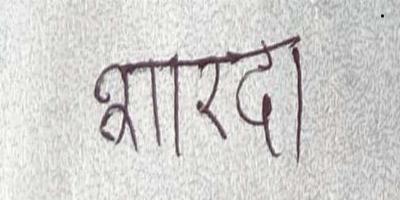 शारदा